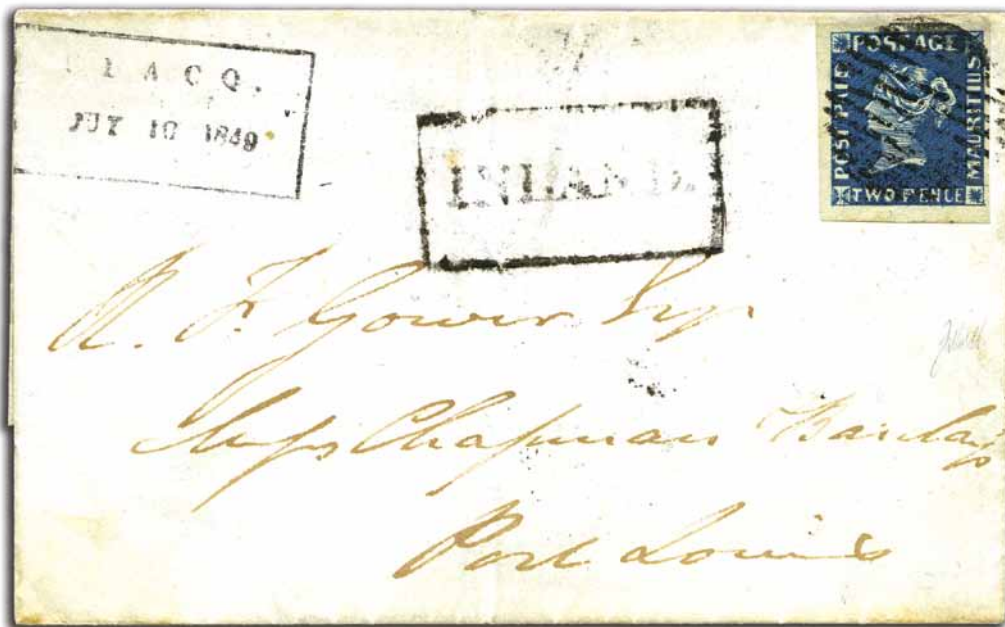 LACQ.
JUY 10 1849
INLAND.
POSTAGE
POST PAID
MAURITIUS
TWO PENCE
N. F. Gower Esqr
Messrs Chapman Barclay
Port Louis